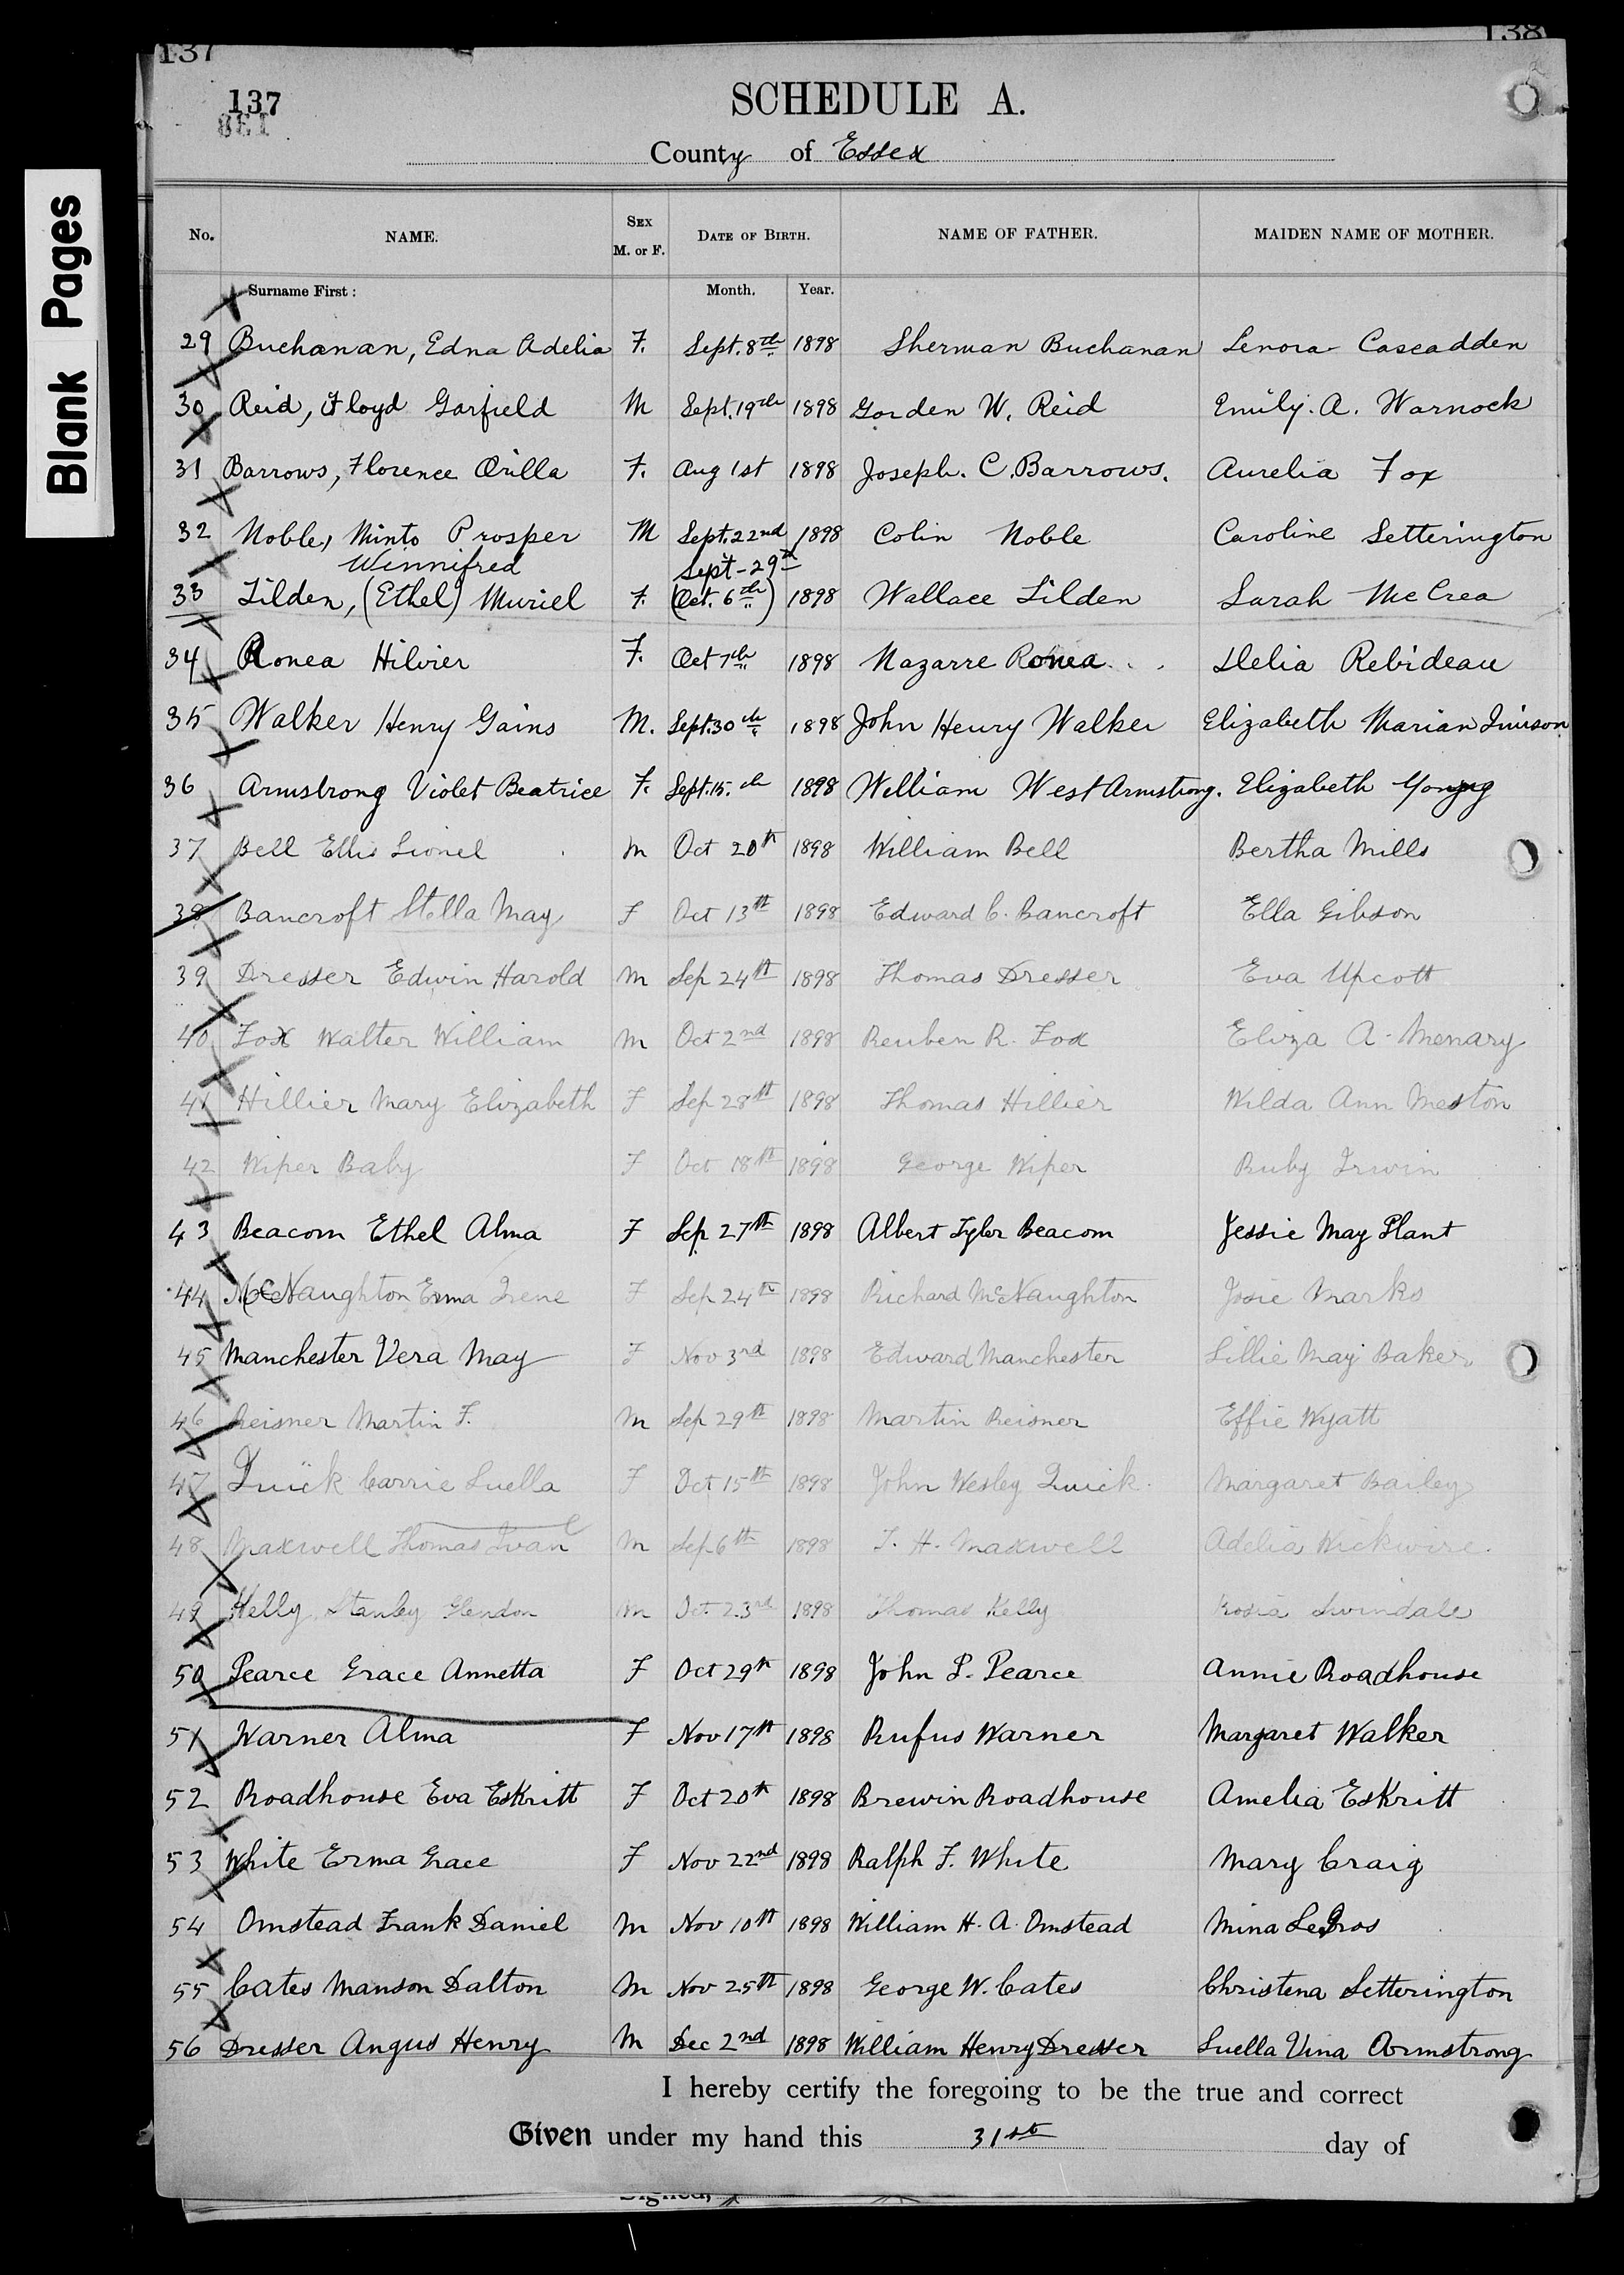 137
138
137
138
SCHEDULE A.
County of Essex
Blank Pages
No. NAME. SEX M. or F. DATE OF BIRTH. NAME OF FATHER. MAIDEN NAME OF MOTHER.
Surname First: Month. Year.
29 Buchanan, Edna Adelia F. Sept. 8th 1898 Sherman Buchanan Lenora Cascadden
30 Reid, Floyd Garfield M Sept. 19th 1898 Gorden W. Reid Emily. A. Warnock
31 Barrows, Florence Orilla F. Aug 1st 1898 Joseph. C. Barrows. Aurelia Fox
32 Noble, Minto Prosper M Sept. 22nd 1898 Colin Noble Caroline Setterington
Winnifred Sept - 29th
33 Tilden, (Ethel) Muriel F. (Oct. 6th) 1898 Wallace Tilden Sarah McCrea
34 Ronea Hilvier F. Oct 7th 1898 Nazarre Ronea Delia Rebideau
35 Walker Henry Gains M. Sept. 30th 1898 John Henry Walker Elizabeth Marian
36 Armstrong Violet Beatrice F. Sept. 15.th 1898 William West Armstrong. Elizabeth
37 Bell Ellis Lionel M Oct 20th 1898 William Bell Bertha Mills
38 Bancroft Stella May F Oct 13th 1898 Edward C. Bancroft Ella Gibson
39 Dresser Edwin Harold M Sep 24th 1898 Thomas Dresser Eva Upcott
40 Fox Walter William M Oct 2nd 1898 Reuben R. Fox Eliza A. Menary
41 Hillier Mary Elizabeth F Sep 28th 1898 Thomas Hillier Wilda Ann Meston
42 Wiper Baby F Oct 18th 1898 George Wiper Ruby Irwin
43 Beacom Ethel Alma F Sep 27th 1898 Albert Tyler Beacom Jessie May Plant
44 McNaughton Erma Irene F Sep 24th 1898 Richard McNaughton Josie Marks
45 Manchester Vera May F Nov 3rd 1898 Edward Manchester Lillie May Baker
46 Reisner Martin F. M Sep 29th 1898 Martin Reisner Effie Wyatt
47 Quick Carrie Luella F Oct 15th 1898 John Wesley Quick. Margaret Bailey
48 Maxwell Thomas Ivan M Sep 6th 1898 T. H. Maxwell Adelia Wickwire.
49 Kelly Stanley Glendon M Oct. 23rd 1898 Thomas Kelly Rosia Swindale
50 Pearce Grace Annetta F Oct 29th 1898 John P. Pearce Annie Roadhouse
51 Warner Alma F Nov 17th 1898 Rufus Warner Margaret Walker
52 Roadhouse Eva Eskritt F Oct 20th 1898 Brewin Roadhouse Amelia Eskritt
53 White Erma Grace F Nov 22nd 1898 Ralph F. White Mary Craig
54 Omstead Frank Daniel M Nov 10th 1898 William H. A. Omstead Mina LeGros
55 Cates Manson Dalton M Nov 25th 1898 George W. Cates Christena Setterington
56 Dresser Angus Henry M Dec 2nd 1898 William Henry Dresser Luella Vina Armstrong
I hereby certify the foregoing to be the true and correct
Given under my hand this 31st day of
Signed,